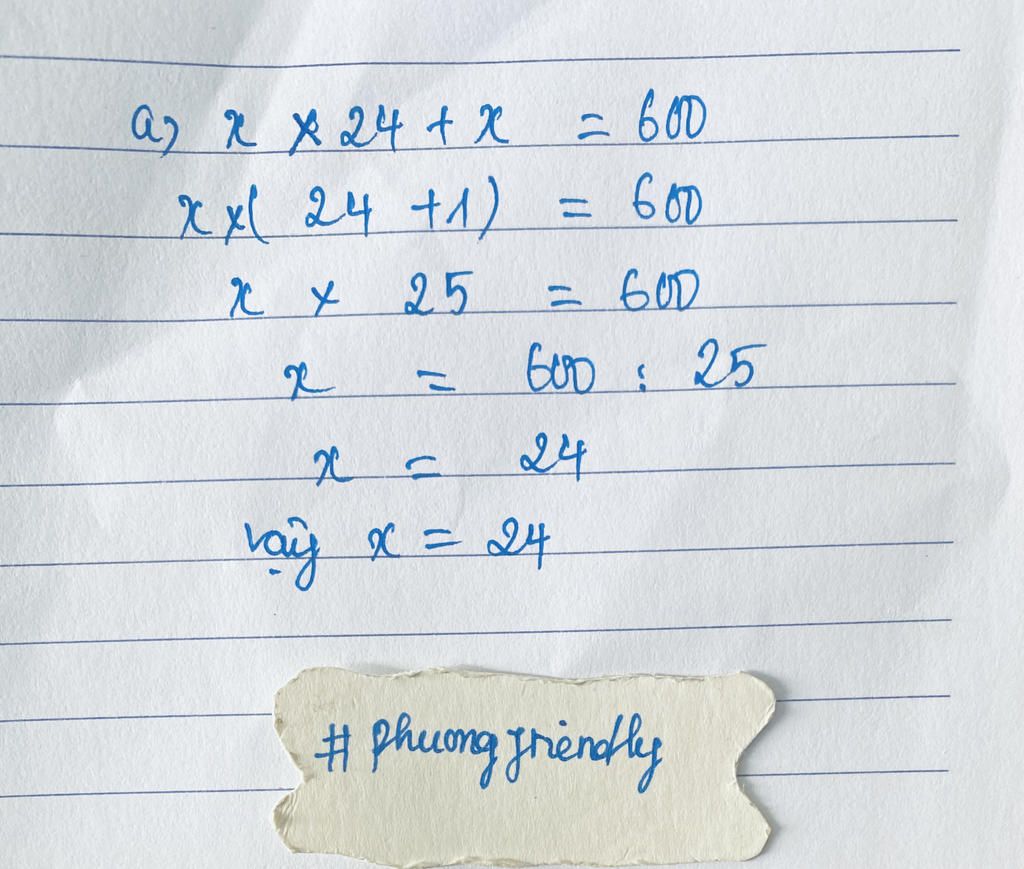 a, x × 24 + x = 600
x × ( 24 + 1 ) = 600
x × 25 = 600
x = 600 : 25
x = 24
vậy x = 24
# phuong friendly